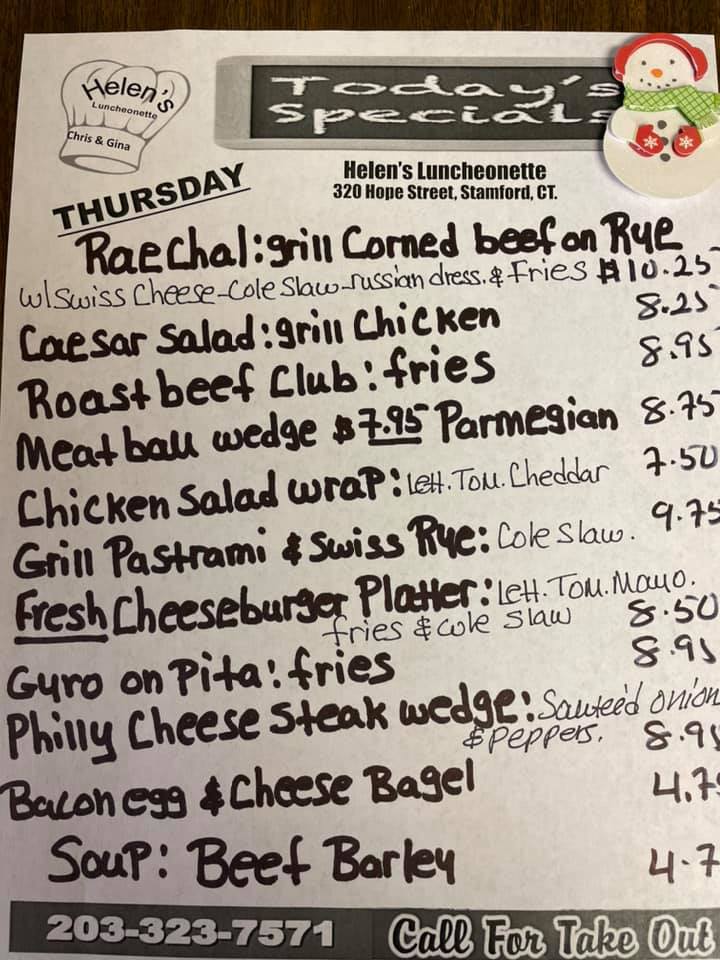 Helen's
Luncheonette
Chris & Gina
Today's
Specials
THURSDAY
Helen's Luncheonette
320 Hope Street, Stamford, CT.
Raechal: grill Corned beef on Rye
w/ Swiss Cheese-Cole Slaw-russian dress. & Fries $10.25
Caesar Salad: grill Chicken 8.25
Roast beef Club: fries 8.95
Meatball wedge $7.95 Parmesian 8.75
Chicken Salad wrap: Lett. Tom. Cheddar 7.50
Grill Pastrami & Swiss Rye: Cole Slaw. 9.75
Fresh Cheeseburger Platter: Lett. Tom. Mayo.
fries & cole slaw 8.50
Gyro on Pita: fries 8.95
Philly Cheese Steak wedge: Sautee'd onion
& Peppers. 8.95
Bacon egg & Cheese Bagel 4.7
Soup: Beef Barley 4.7
203-323-7571 Call For Take Out